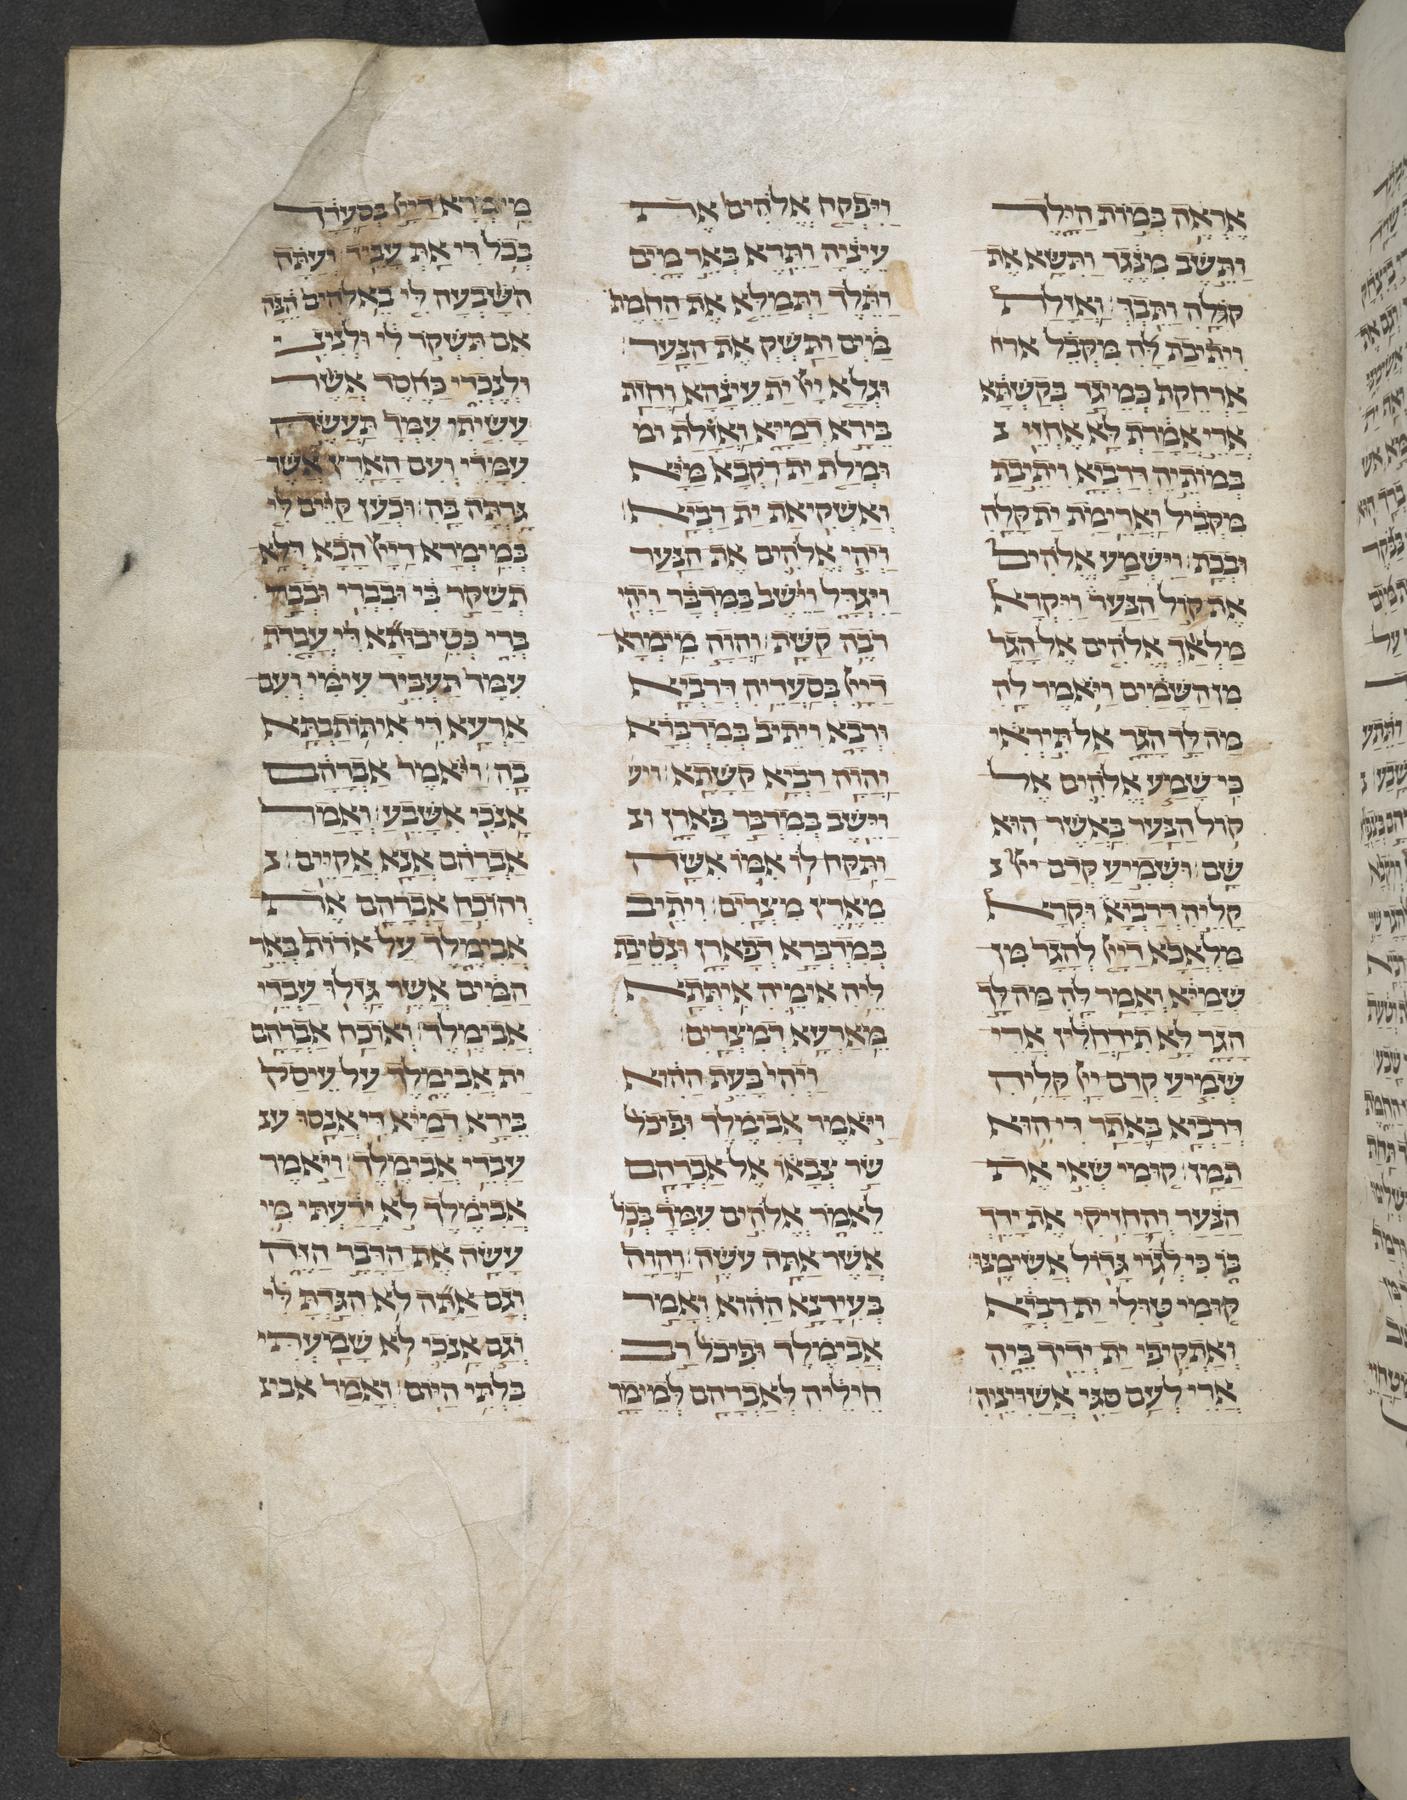 אֶרְאֶה בְּמוֹת הַיָּלֶד
וַתֵּשֶׁב מִנֶּגֶד וַתִּשָּׂא אֶת
קוֹלָהּ וַתֵּבְךְּ וַאֲזַלַת
וִיתֵיבַת לַהּ מִקֳּבֵל ארח
אַרְחֵקַת כְּמֵיגַד בְּקַשְׁתָּא
אֲרֵי אֲמַרַת לָא אֶחְזֵי ב
בְּמוֹתֵיהּ דְּרַבְיָא וִיתֵיבַת
מִקֳּבֵיל וַאֲרֵימַת יַת קָלַהּ
וּבְכָת וַיִּשְׁמַע אֱלֹהִים
אֶת קוֹל הַנַּעַר וַיִּקְרָא
מַלְאַךְ אֱלֹהִים אֶל הָגָר
מִן הַשָּׁמַיִם וַיֹּאמֶר לָהּ
מַה לָּךְ הָגָר אַל תִּירְאִי
כִּי שָׁמַע אֱלֹהִים אֶל
קוֹל הַנַּעַר בַּאֲשֶׁר הוּא
שָׁם וּשְׁמִיעַ קֳדָם ייי
קָלֵיהּ דְּרַבְיָא וּקְרָא
מַלְאֲכָא דַייי לְהָגָר מִן
שְׁמַיָּא וַאֲמַר לַהּ מַה לָּךְ
הָגָר לָא תִידְחֲלִין אֲרֵי
שְׁמִיעַ קֳדָם ייי קָלֵיהּ
דְּרַבְיָא בַּאֲתַר דִּי הוּא
תַמָּן קוּמִי שְׂאִי אֶת
הַנַּעַר וְהַחֲזִיקִי אֶת יָדֵךְ
בּוֹ כִּי לְגוֹי גָּדוֹל אֲשִׂימֶנּוּ
קוּמִי טוּלִי יַת רַבְיָא
וְאַתְקִיפִי יַת יְדִיךְ בֵּיהּ
אֲרֵי לְעַם סַגִּי אֲשַׁוֵּינֵיהּ
וַיִּפְקַח אֱלֹהִים אֶת
עֵינֶיהָ וַתֵּרֶא בְּאֵר מָיִם
וַתֵּלֶךְ וַתְּמַלֵּא אֶת הַחֵמֶת
מַיִם וַתַּשְׁקְ אֶת הַנָּעַר
וּגְלָא ייי יַת עֵינָהָא וַחֲזָת
בֵּירָא דְמַיָּא וַאֲזַלַת ומ
וּמְלַת יַת רֻקְבָא מַיָּא
וְאַשְׁקִיאַת יַת רַבְיָא
וַיְהִי אֱלֹהִים אֶת הַנַּעַר
וַיִּגְדָּל וַיֵּשֶׁב בַּמִּדְבָּר וַיְהִי
רֹבֶה קַשָּׁת וַהֲוָה מֵימְרָא
דַייי בְּסַעֲדֵיהּ דְּרַבְיָא
וּרְבָא וִיתֵיב בְּמַדְבְּרָא
וַהֲוָה רַבְיָא קַשָּׁתָא ויש
וַיֵּשֶׁב בְּמִדְבַּר פָּארָן ות
וַתִּקַּח לוֹ אִמּוֹ אִשָּׁה
מֵאֶרֶץ מִצְרָיִם וִיתֵיב
בְּמַדְבְּרָא דְפָארָן וּנְסֵיבַת
לֵיהּ אִימֵּיהּ אִיתְּתָא
מֵאַרְעָא דְמִצְרָיִם
וַיְהִי בָּעֵת הַהוּא
וַיֹּאמֶר אֲבִימֶלֶךְ וּפִיכֹל
שַׂר צְבָאוֹ אֶל אַבְרָהָם
לֵאמֹר אֱלֹהִים עִמְּךָ בְּכֹל
אֲשֶׁר אַתָּה עֹשֶׂה וַהֲוָה
בְּעִידָּנָא הַהוּא וַאֲמַר
אֲבִימֶלֶךְ וּפִיכֹל רַב
חֵילֵיהּ לְאַבְרָהָם לְמֵימַר
מֵימְרָא דַייי בְּסַעֲדָךְ
בְּכֹל דִּי אַתְּ עָבֵיד וְעַתָּה
הִשָּׁבְעָה לִּי בֵאלֹהִים הֵנָּה
אִם תִּשְׁקֹר לִי וּלְנִינִי
וּלְנֶכְדִּי כַּחֶסֶד אֲשֶׁר
עָשִׂיתִי עִמְּךָ תַּעֲשֶׂה
עִמָּדִי וְעִם הָאָרֶץ אֲשֶׁר
גַּרְתָּה בָּהּ וּכְעַן קַיֵּים לִי
בְּמֵימְרָא דַייי הָכָא דְּלָא
תְשַׁקַּר בִּי וּבִבְרִי וּבְבַר
בְּרִי כְּטֵיבוּתָא דִּי עֲבַדִת
עִמָּךְ תַּעֲבֵיד עִימִּי וְעִם
אַרְעָא דִּי אִיתּוֹתַבְתָּא
בַהּ וַיֹּאמֶר אַבְרָהָם
אָנֹכִי אִשָּׁבֵעַ וַאֲמַר
אַבְרָהָם אֲנָא אֲקַיֵּים
וְהוֹכִחַ אַבְרָהָם אֶת
אֲבִימֶלֶךְ עַל אֹדוֹת בְּאֵר
הַמַּיִם אֲשֶׁר גָּזְלוּ עַבְדֵי
אֲבִימֶלֶךְ וְאוֹכַח אַבְרָהָם
יָת אֲבִימֶלֶךְ עַל עֵיסַק
בֵּירָא דְמַיָּא דִּי אֲנַסוּ עב
עַבְדֵי אֲבִימֶלֶךְ וַיֹּאמֶר
אֲבִימֶלֶךְ לֹא יָדַעְתִּי מִי
עָשָׂה אֶת הַדָּבָר הַזֶּה
וְגַם אַתָּה לֹא הִגַּדְתָּ לִּי
וְגַם אָנֹכִי לֹא שָׁמַעְתִּי
בִּלְתִּי הַיּוֹם וַאֲמַר אבימ